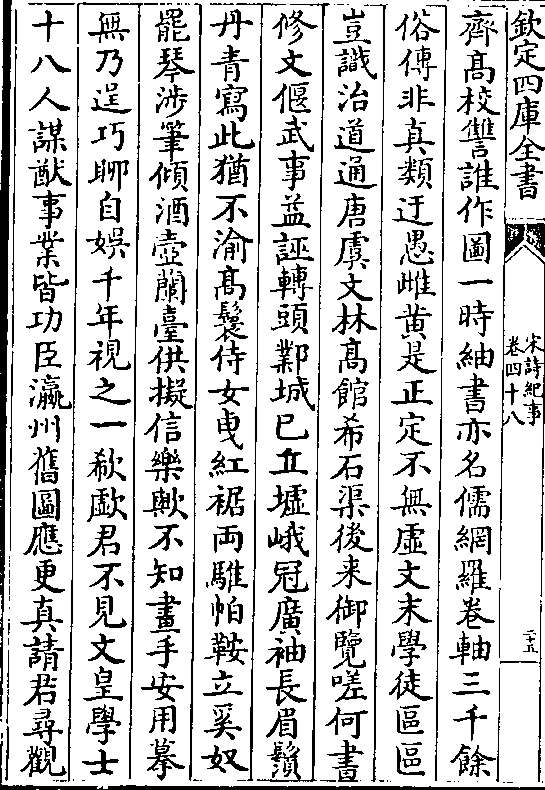 欽定四庫全書
宋詩紀事
卷四十八
二十五
齊髙校讐誰作圖一時紬書亦名儒網羅卷軸三千餘
俗傳非真類迂愚雌黄是正定不無虛文末學徒區區
豈識治道通唐虞文林髙館希石渠後来御覽嗟何書
修文偃武事益誣轉頭鄴城已丘墟峨冠廣袖長眉鬚
丹青寫此猶不渝髙鬟侍女曵紅裾両騅帕鞍立奚奴
罷琴涉筆傾酒壺蘭臺供擬信樂歟不知畫手安用摹
無乃逞巧聊自娛千年視之一欷歔君不見文皇學士
十八人謀猷事業皆功臣瀛州舊圖應更真請君尋觀